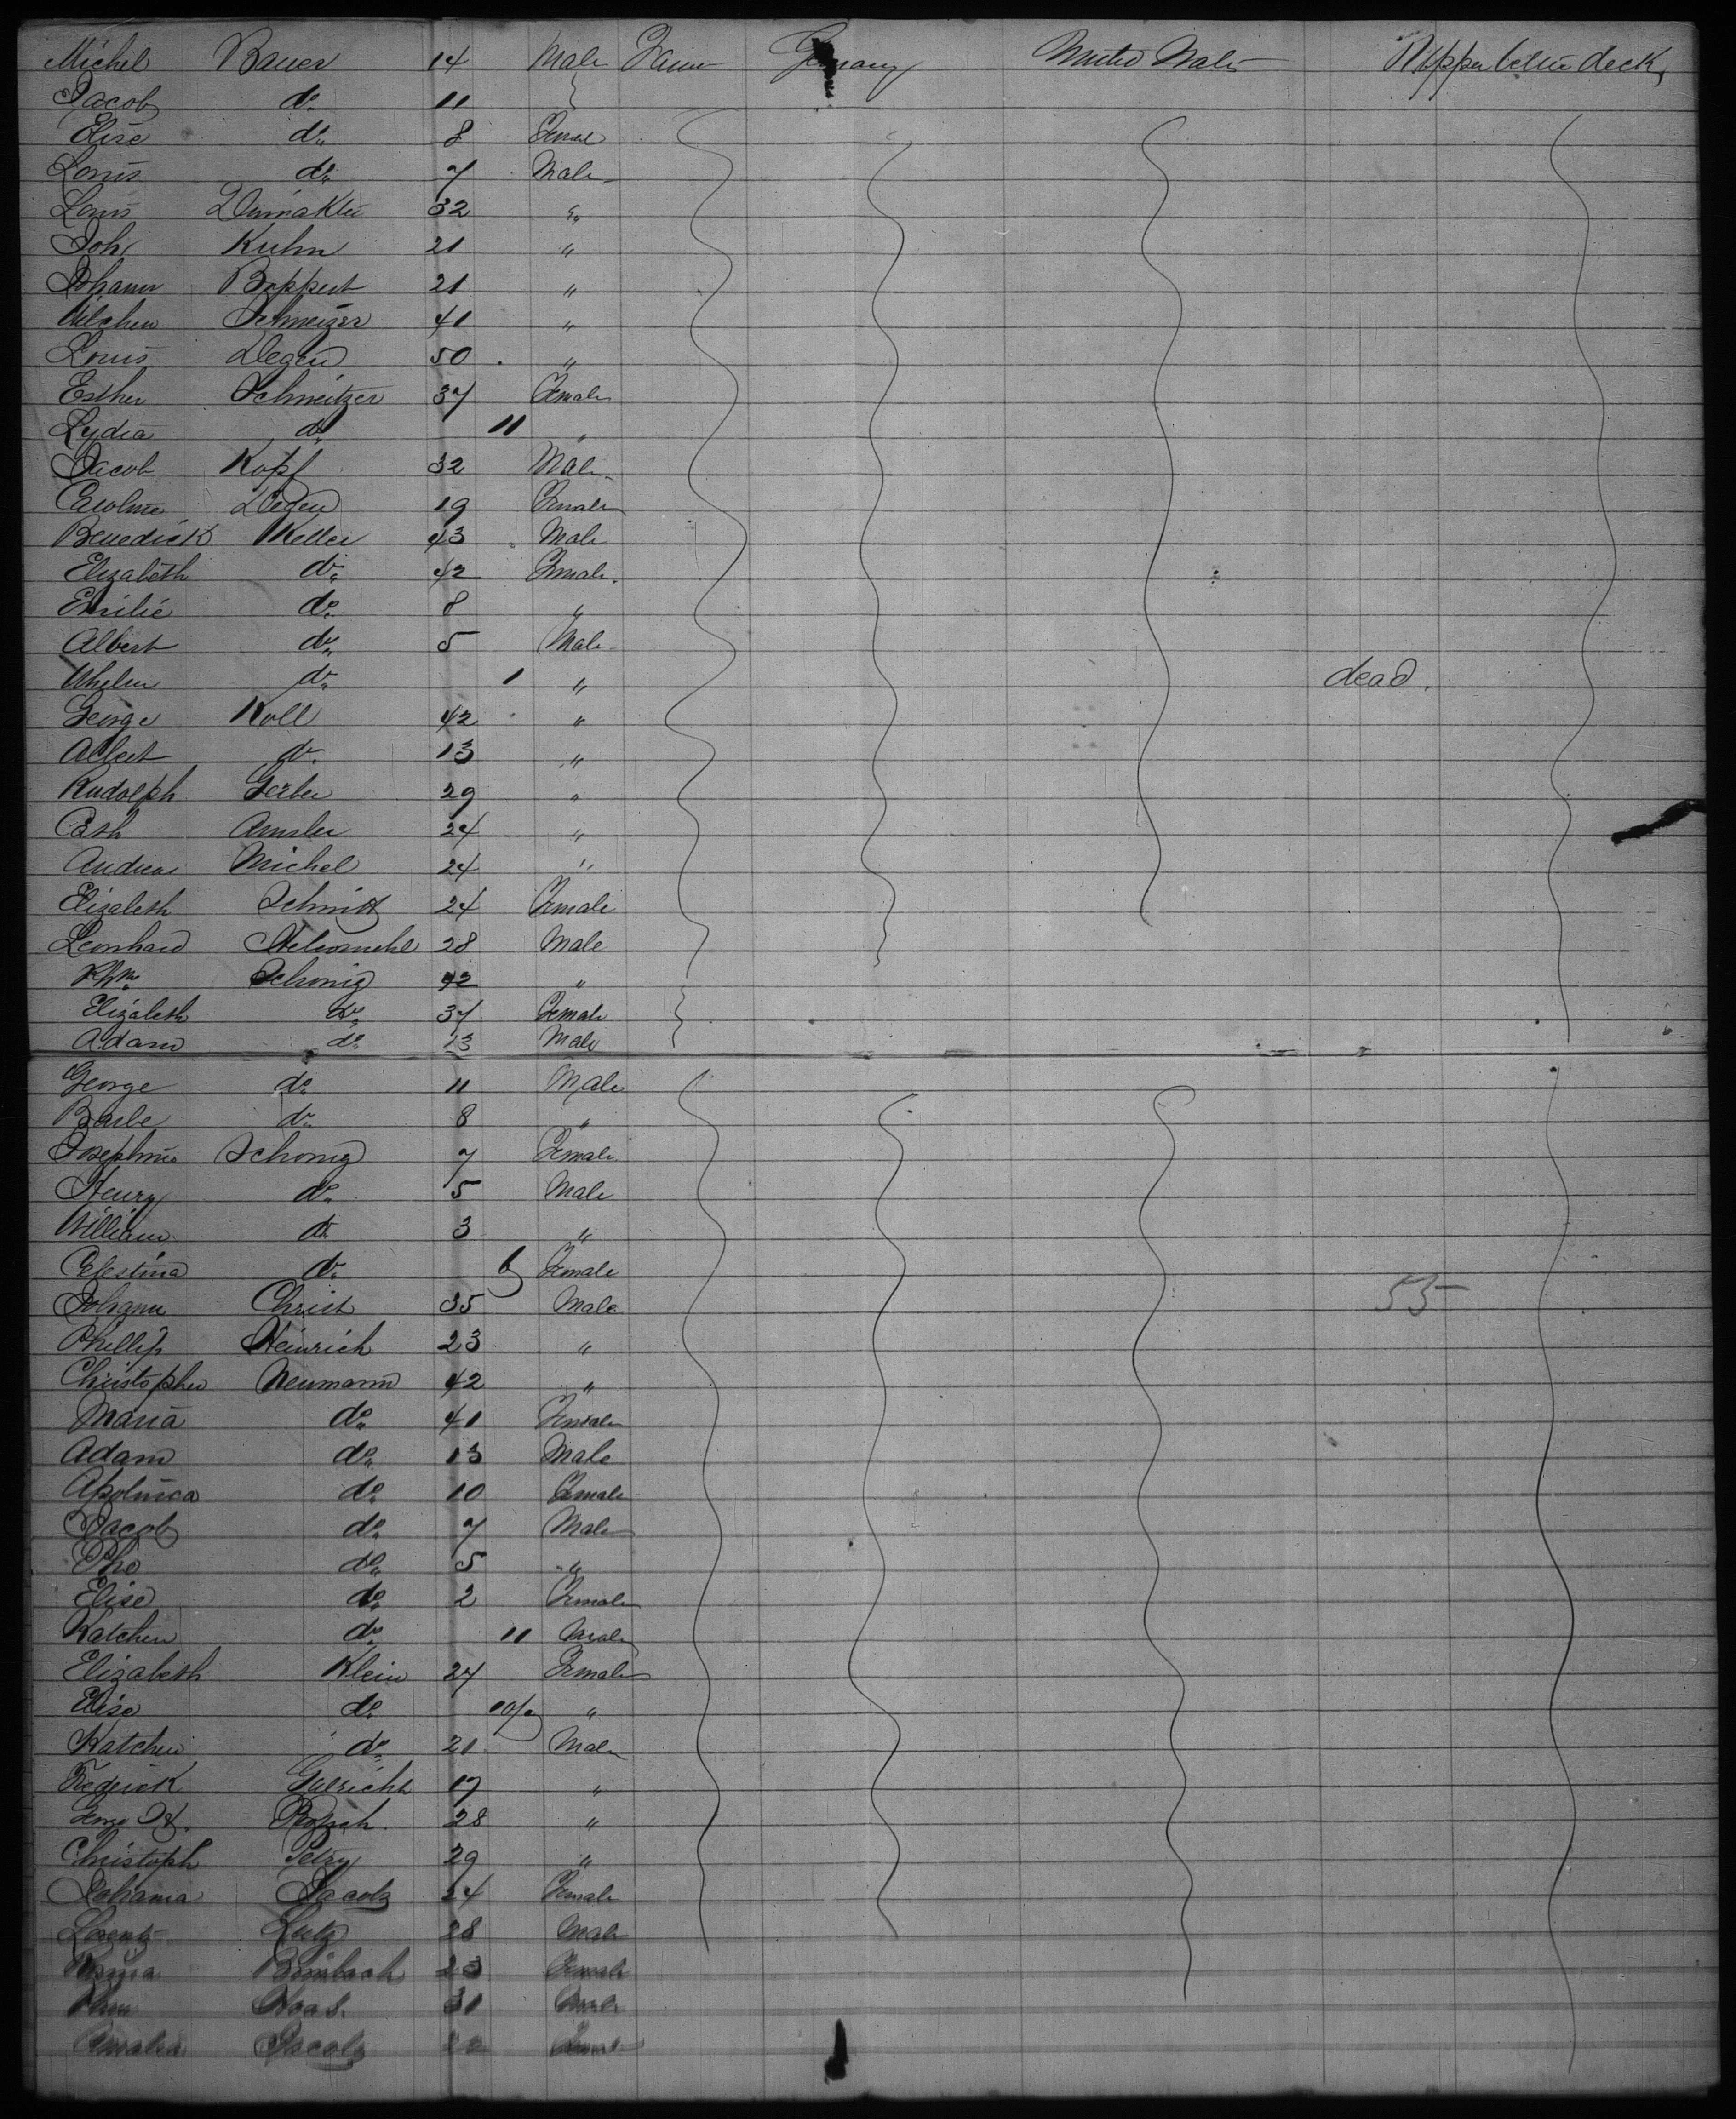 Michel Bauer 14 Male Germany United Upper between deck
Jacob do 11
Elise do 8 Female
Louis do 7 Male
Louis 32 "
Joh. Kuhn 21 "
Johann Boppert 21 "
41 "
Louis Degen 50 "
Esther Schweitzer 37 Female
Lydia do 11 "
Jacob Kopf 32 Male
Caroline Degen 19 Female
Benedick Keller 43 Male
Elizabeth do 42 Female
Emilie do 8 "
Albert do 5 Male
do 1 " dead.
George Koll 42 "
Albert do 13 "
Rudolph Gerber 29 "
Amsler 24 "
Andreas Michel 24 "
Elizabeth Schmitt 24 Female
Leonhard 28 Male
Schonig 42 "
Elizabeth do 37 Female
Adam do 13 Male
George do 11 Male
Barbe do 8 "
Josephine Schonig 7 Female
Henry do 5 Male
William do 3 "
Celestina do 6 Female
Johann Christ 35 Male 55
Phillip Heinrich 23 "
Christopher Neumann 42 "
Maria do 41 Female
Adam do 13 Male
Apolinica do 10 Female
Jacob do 7 Male
Otto do 5 "
Elise do 2 Female
Katchen do 11 Male
Elizabeth Klein 24 Female
Elise do "
Katchen do 21 Male
Frederick 19 "
George 28 "
Christoph Petry 29 "
Johanna Jacob 24 Female
Lorentz Lutz 28 Male
23 Female
Haas 31 Male
Amalia Jacob 22 Female